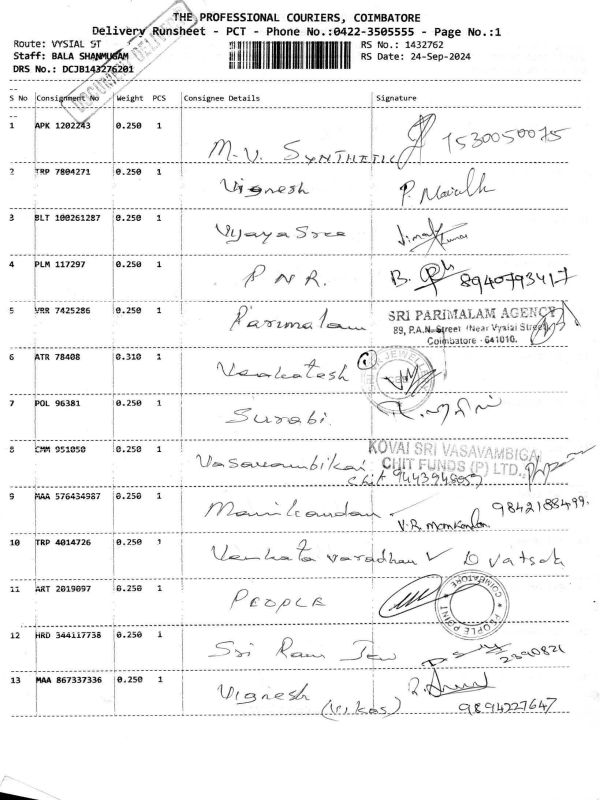 THE PROFESSIONAL COURIERS, COIMBATORE
Delivery Runsheet - PCT - Phone No.:0422-3505555 - Page No.:1
Route: VYSIAL ST
RS No.: 1432762
Staff: BALA SHANMUGAM
RS Date: 24-Sep-2024
DRS No.: DCJB143276201
DOCUMENT DELIVERY
S No Consignment No Weight PCS Consignee Details Signature
1 APK 1202243 0.250 1
M.V. SYNTHETIC 7530050075
2 TRP 7804271 0.250 1
Vignesh P.
3 BLT 100261287 0.250 1
VijayaSree Vimal Kumar
4 PLM 117297 0.250 1
P N R. B. 8940793417
5 VRR 7425286 0.250 1
Parimalam SRI PARIMALAM AGENCY
89, P.A.N. Street (Near Vysial Street)
Coimbatore - 641010.
6 ATR 78408 0.310 1
Venkatesh JEWELLE
7 POL 96381 0.250 1
Surabi.
8 CMM 951050 0.250 1
Vasavambikai KOVAI SRI VASAVAMBIGAI
Chit CHIT FUNDS (P) LTD.,
9 MAA 576434987 0.250 1
Manikandan V.R. Manikandan 9842188499.
10 TRP 4014726 0.250 1
Venkata varadhan D Vatsala
11 ART 2019097 0.250 1
PEOPLE PEOPLE POINT COIMBATORE
12 HRD 344117738 0.250 1
Sri Ram Jew 2390821
13 MAA 867337336 0.250 1
Vignesh R.
(Vikas) 9894227647